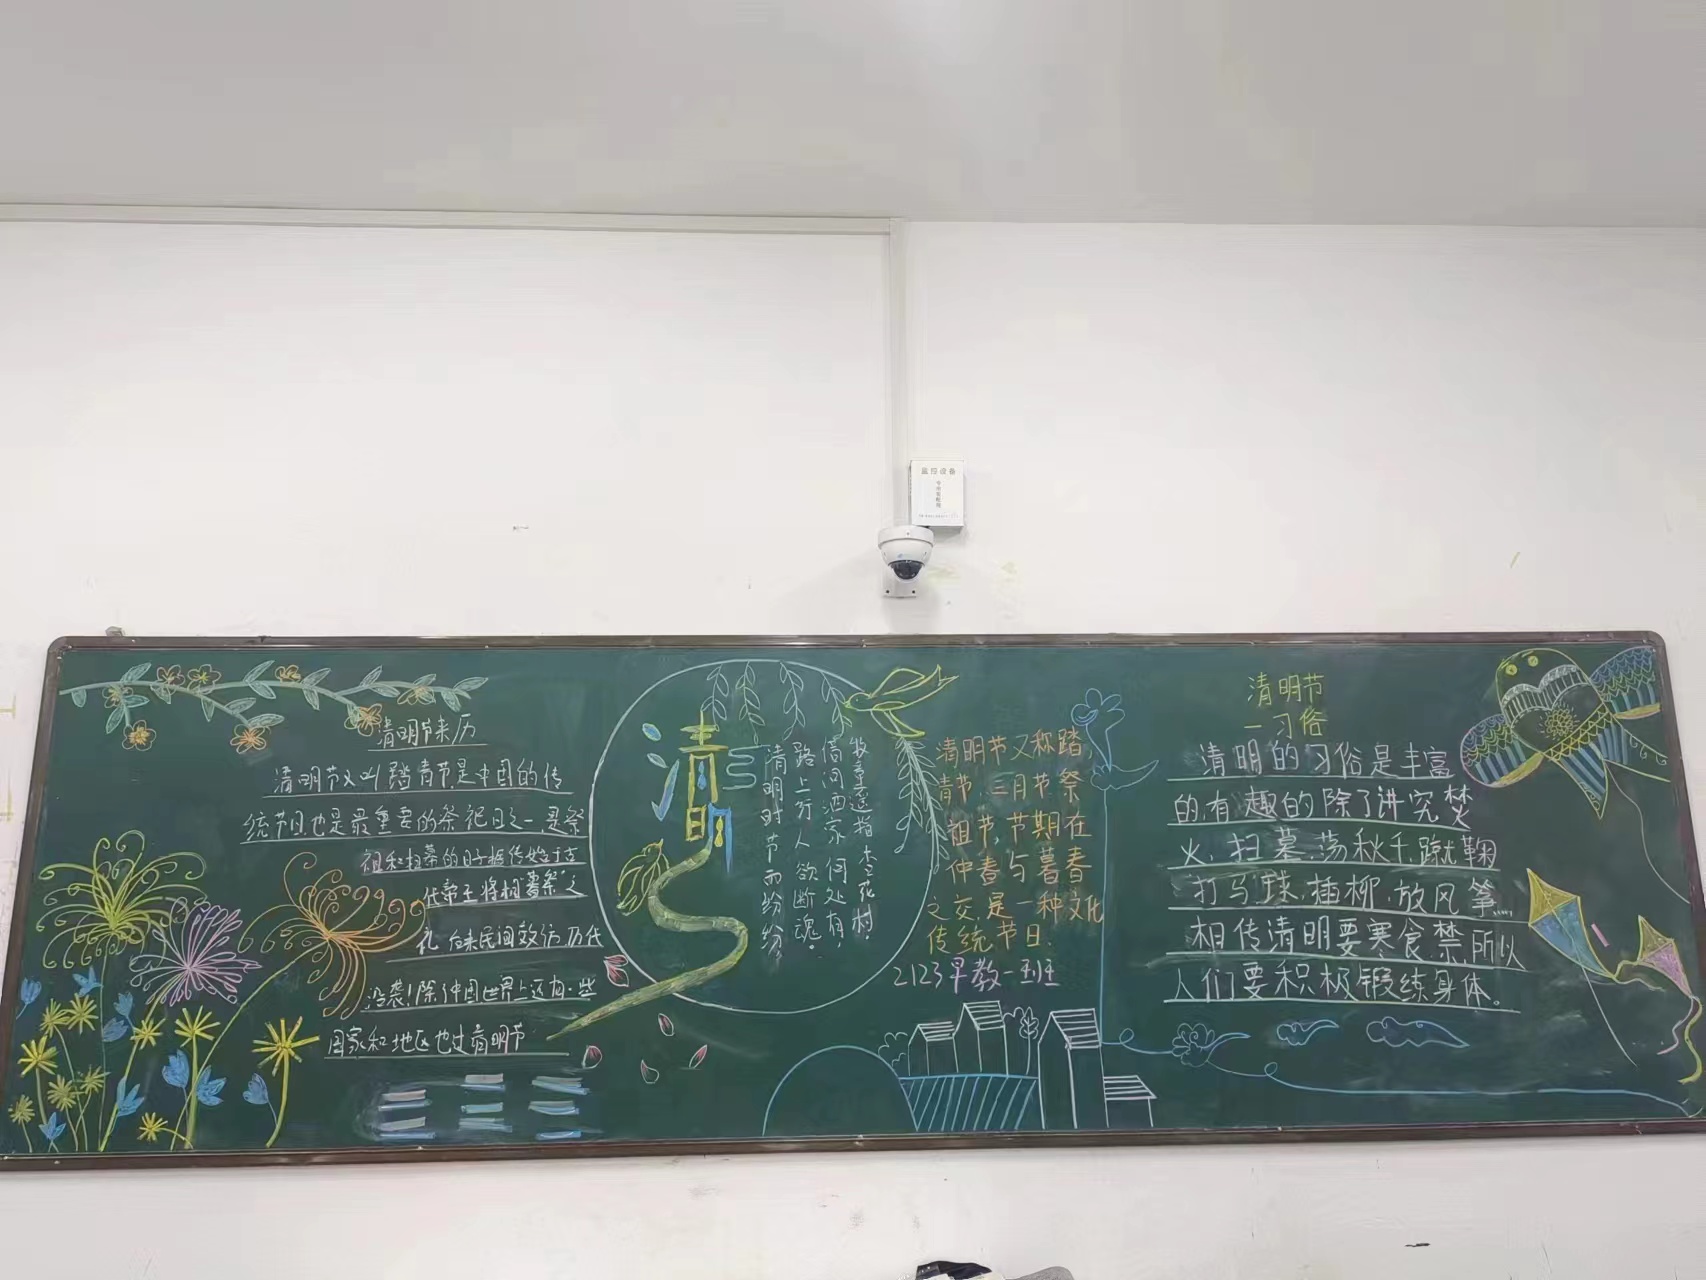 监控设备
清明节来历
清明节又叫踏青节,是中国的传
统节日,也是最重要的祭祀日之一,是祭
祖和扫墓的日子.据传始于古
代帝王将相"墓祭"之
礼
国家和地区也过清明节
清明
清明时节雨纷纷
路上行人欲断魂.
借问酒家何处有,
牧童遥指杏花村.
清明节又称踏
青节,三月节,祭
祖节,节期在
仲春与暮春
之交,是一种文化
传统节日.
2123早教一班
清明节
一习俗
清明的习俗是丰富
的,有趣的除了讲究焚
火,扫墓,荡秋千,蹴鞠
打马球,插柳,放风筝
相传清明要寒食禁,所以
人们要积极锻练身体。